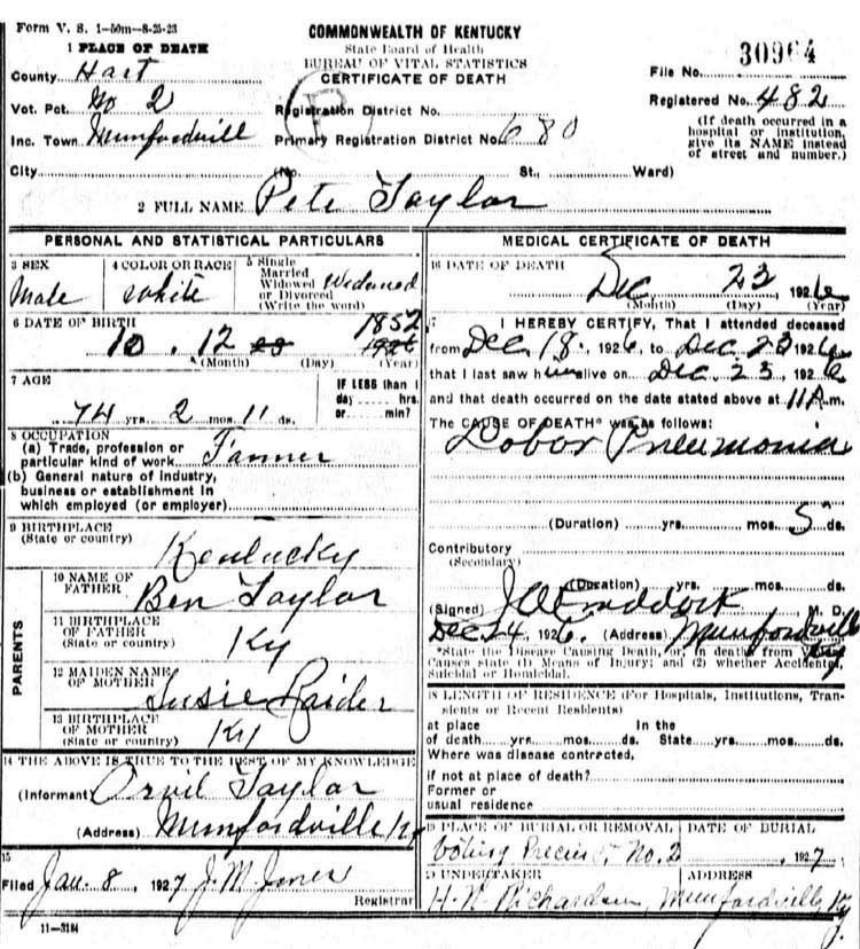 Form V. S. 1-50m-8-25-23
COMMONWEALTH OF KENTUCKY
State Board of Health
BUREAU OF VITAL STATISTICS
CERTIFICATE OF DEATH
1 PLACE OF DEATH
County Hart
File No. 30964
Vot. Pct. No 2
Registration District No.
Registered No. 482
Inc. Town Munfordvill
Primary Registration District No. 680
(If death occurred in a
hospital or institution,
give its NAME instead
of street and number.)
City (No. St., Ward)
2 FULL NAME Pete Taylor
PERSONAL AND STATISTICAL PARTICULARS
3 SEX
Male
4 COLOR OR RACE
White
5 Single
Married
Widowed
or Divorced
(Write the word)
Widowed
6 DATE OF BIRTH
10 . 12 1852
(Month) (Day) (Year)
7 AGE
74 yrs. 2 mos. 11 ds.
IF LESS than 1
day ..... hrs.
or ..... min?
8 OCCUPATION
(a) Trade, profession or
particular kind of work Farmer
(b) General nature of industry,
business or establishment in
which employed (or employer)
9 BIRTHPLACE
(State or country)
Kentucky
PARENTS
10 NAME OF
FATHER
Ben Taylor
11 BIRTHPLACE
OF FATHER
(State or country)
Ky
12 MAIDEN NAME
OF MOTHER
Susie Raider
13 BIRTHPLACE
OF MOTHER
(State or country)
Ky
14 THE ABOVE IS TRUE TO THE BEST OF MY KNOWLEDGE
(Informant) Orvil Taylor
(Address) Munfordville Ky
15
Filed Jan. 8, 1927 J. M. Jones
Registrar
11-3184
MEDICAL CERTIFICATE OF DEATH
16 DATE OF DEATH
Dec 23 1926
(Month) (Day) (Year)
17 I HEREBY CERTIFY, That I attended deceased
from Dec. 18, 1926, to Dec. 23 1926
that I last saw him alive on Dec. 23, 1926
and that death occurred on the date stated above at 11 A.m.
The CAUSE OF DEATH* was as follows:
Lobar Pneumonia
(Duration) yrs. mos. 5 ds.
Contributory
(Secondary)
(Duration) yrs. mos. ds.
(Signed) Craddock, M. D.
Dec 24, 1926. (Address) Munfordville
Ky
*State the Disease Causing Death, or, in deaths from
Causes state (1) Means of Injury; and (2) whether Accidental,
Suicidal or Homicidal.
18 LENGTH OF RESIDENCE (For Hospitals, Institutions, Tran-
sients or Recent Residents)
at place In the
of death yrs. mos. ds. State yrs. mos. ds.
Where was disease contrected,
if not at place of death?
Former or
usual residence
19 PLACE OF BURIAL OR REMOVAL
Voting Precinct No. 2
DATE OF BURIAL
, 1927
20 UNDERTAKER
H. N. Richardson,
ADDRESS
Munfordville, Ky.